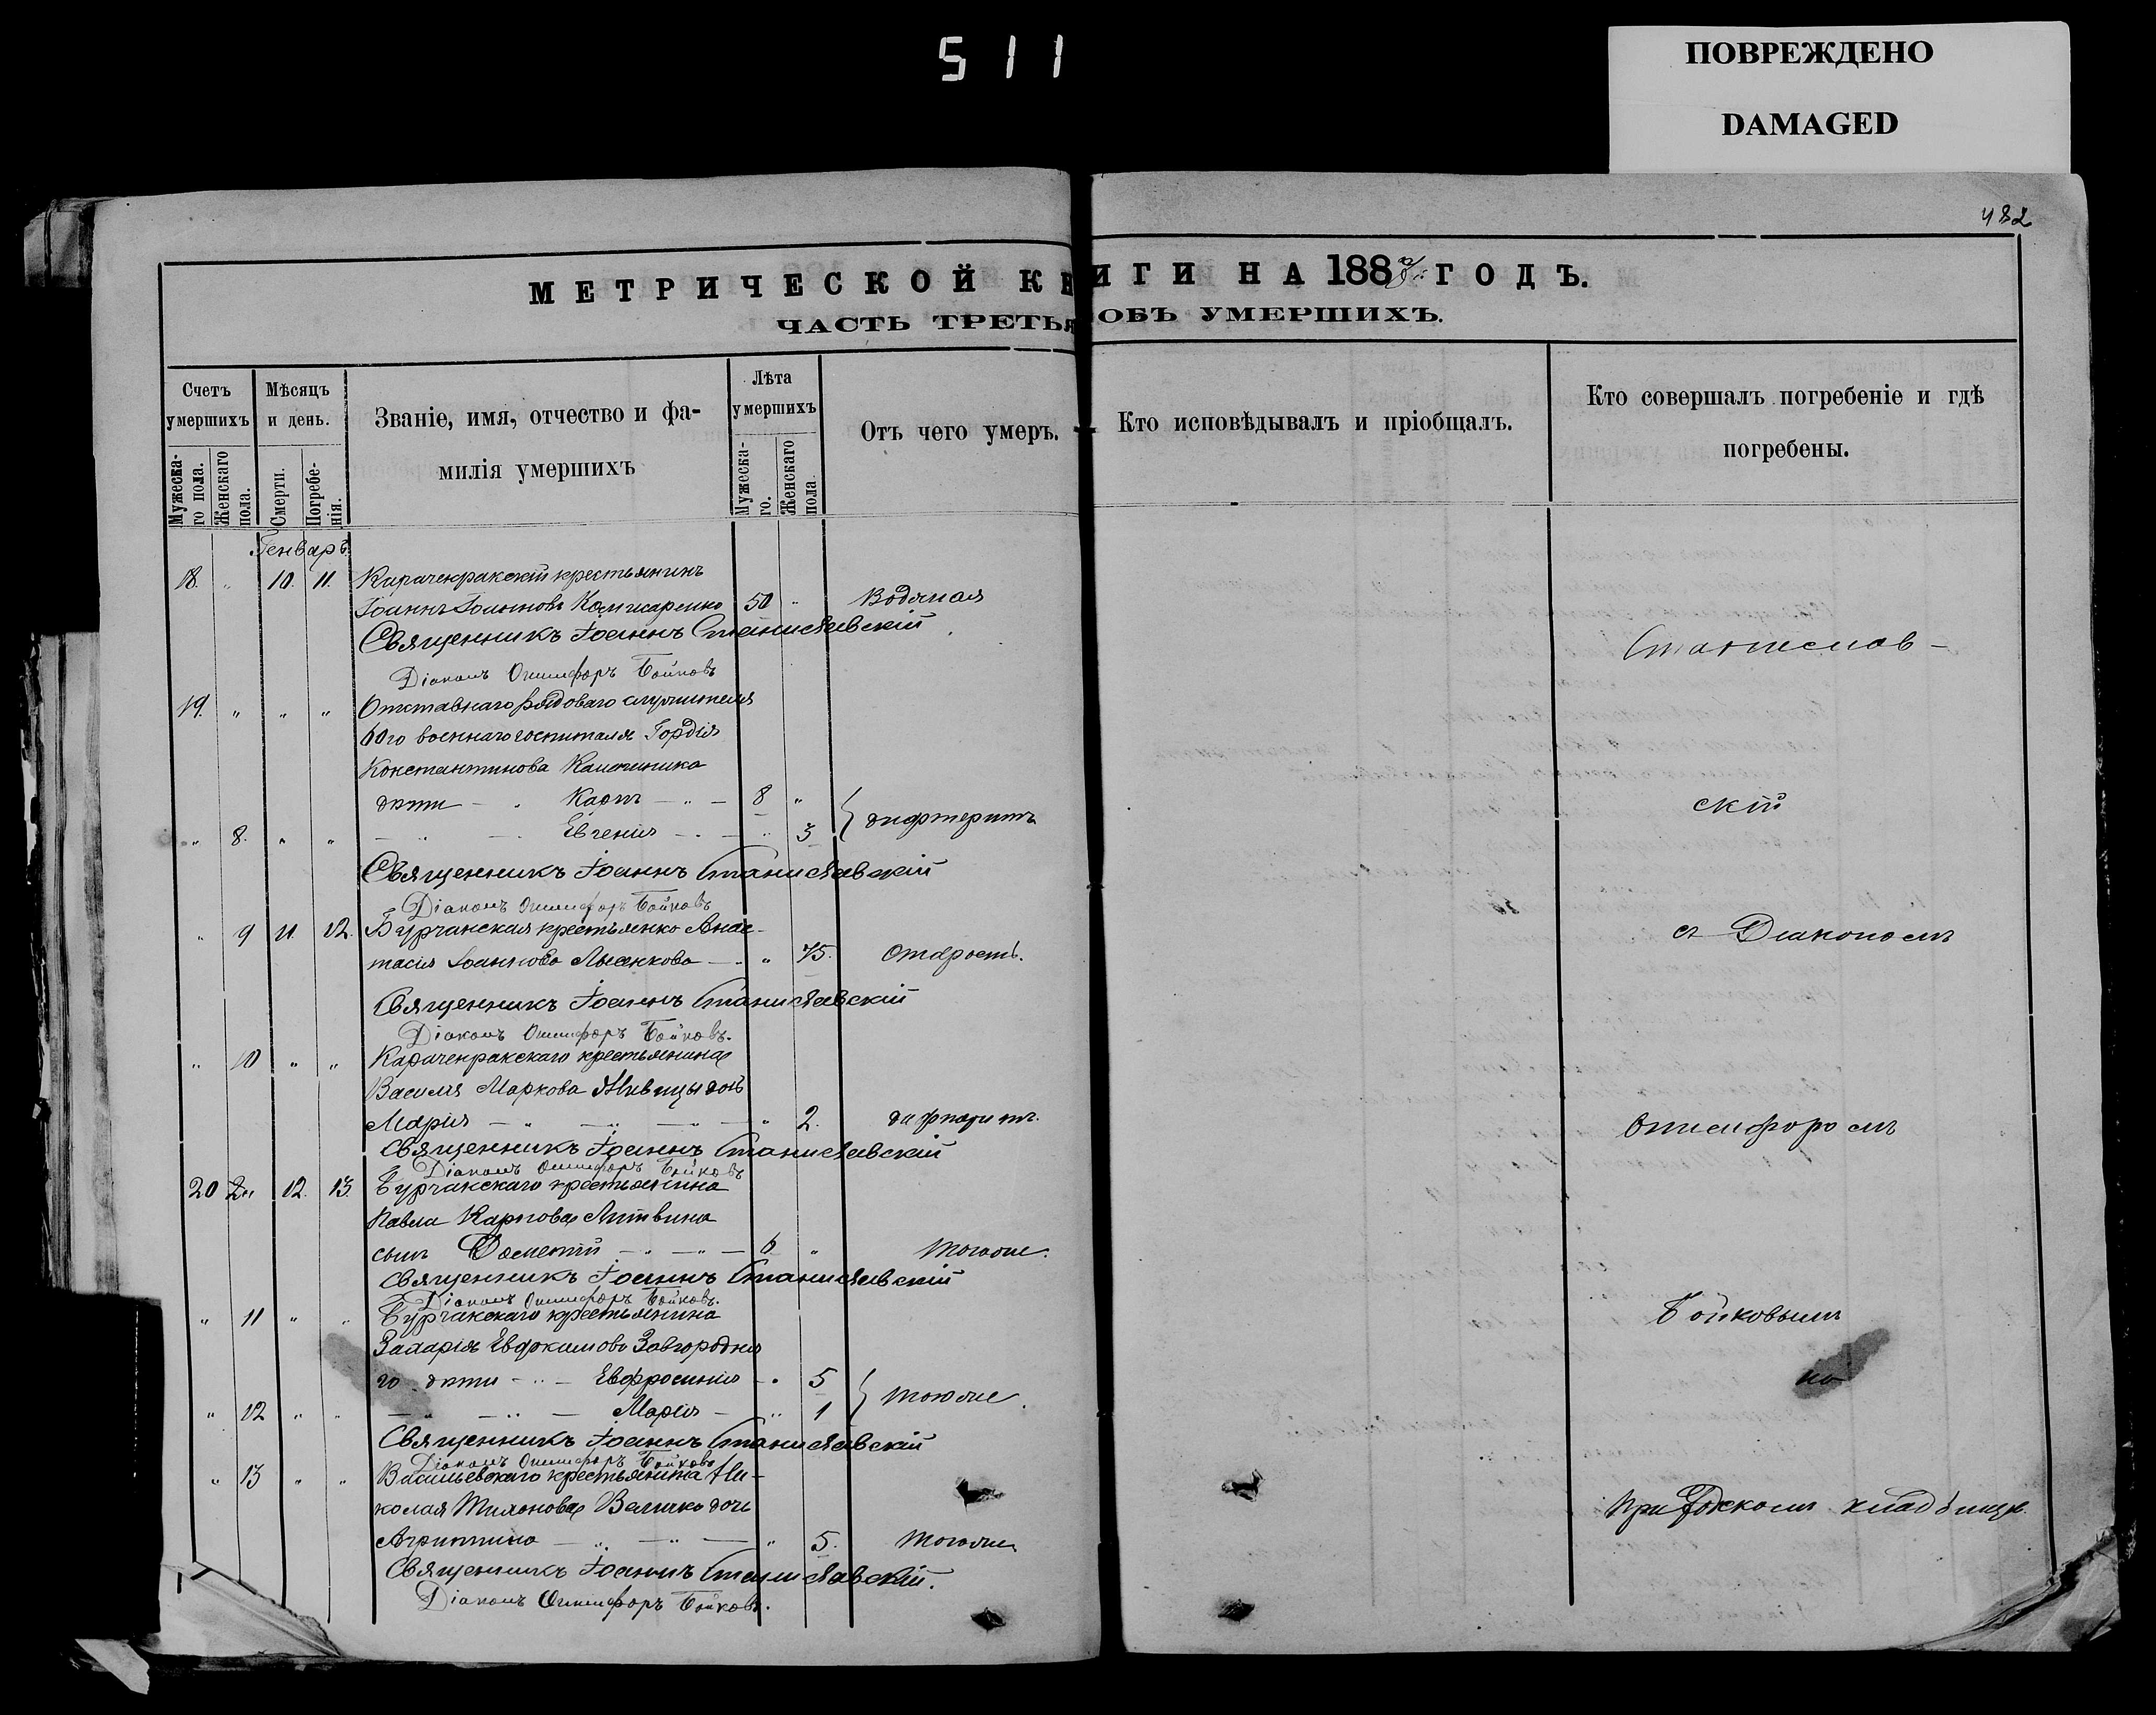 511
ПОВРЕЖДЕНО
DAMAGED
482
МЕТРИЧЕСКОЙ КНИГИ НА 188 ГОДЪ.
ЧАСТЬ ТРЕТЬЯ ОБЪ УМЕРШИХЪ.
Счетъ умершихъ
Мужеска-го пола.
Женскаго пола.
Мѣсяцъ и день.
Смерти.
Погребе-нія.
Званіе, имя, отчество и фа-
милія умершихъ
Лѣта умершихъ
Мужеска-го.
Женскаго пола.
Отъ чего умеръ.
Кто исповѣдывалъ и пріобщалъ.
Кто совершалъ погребеніе и гдѣ
погребены.
Генварь
18. " 10. 11. Карачекракскій крестьянинъ
Іоаннъ Іоанновъ 50 " Водяная
Священникъ Іоаннъ Станиславскій
Станислав-
Діаконъ Онисифоръ Бойковъ
19. " " " Отставнаго рядоваго служителя
60го военнаго госпиталя Гордія
Константинова
дѣти Карпъ 8 "
скій
" 8. " " Евгенія " 3 } дифтеритъ
Священникъ Іоаннъ Станиславскій
Діаконъ Онисифоръ Бойковъ
" 9 11. 12. Бурчакская крестьянка Анас-
съ Діакономъ
тасія Іоаннова Лысенкова " 75. старость.
Священникъ Іоаннъ Станиславскій
Діаконъ Онисифоръ Бойковъ.
" 10 " " Карачекракскаго крестьянина
Василія Маркова дочь
Марія " 2. дифтеритъ.
Онисифоромъ
Священникъ Іоаннъ Станиславскій
Діаконъ Онисифоръ Бойковъ
20 12. 13. Бурчакскаго крестьянина
Павла Карпова Литвина
сынъ 6 " тогоже.
Священникъ Іоаннъ Станиславскій
Діаконъ Онисифоръ Бойковъ.
" 11 " " Бурчакскаго крестьянина
Бойковымъ
Захарія Евфкимова Завгородня
го дѣти Евфросинія " 5
на
" 12 " " Марія " 1 } тогоже.
Священникъ Іоаннъ Станиславскій
Діаконъ Онисифоръ Бойковъ
" 13 " " Васильевскаго крестьянина Ни-
колая Величко дочь
кладбищѣ.
Агриппина " 5. тогоже.
Священникъ Іоаннъ Станиславскій.
Діаконъ Онисифоръ Бойковъ.